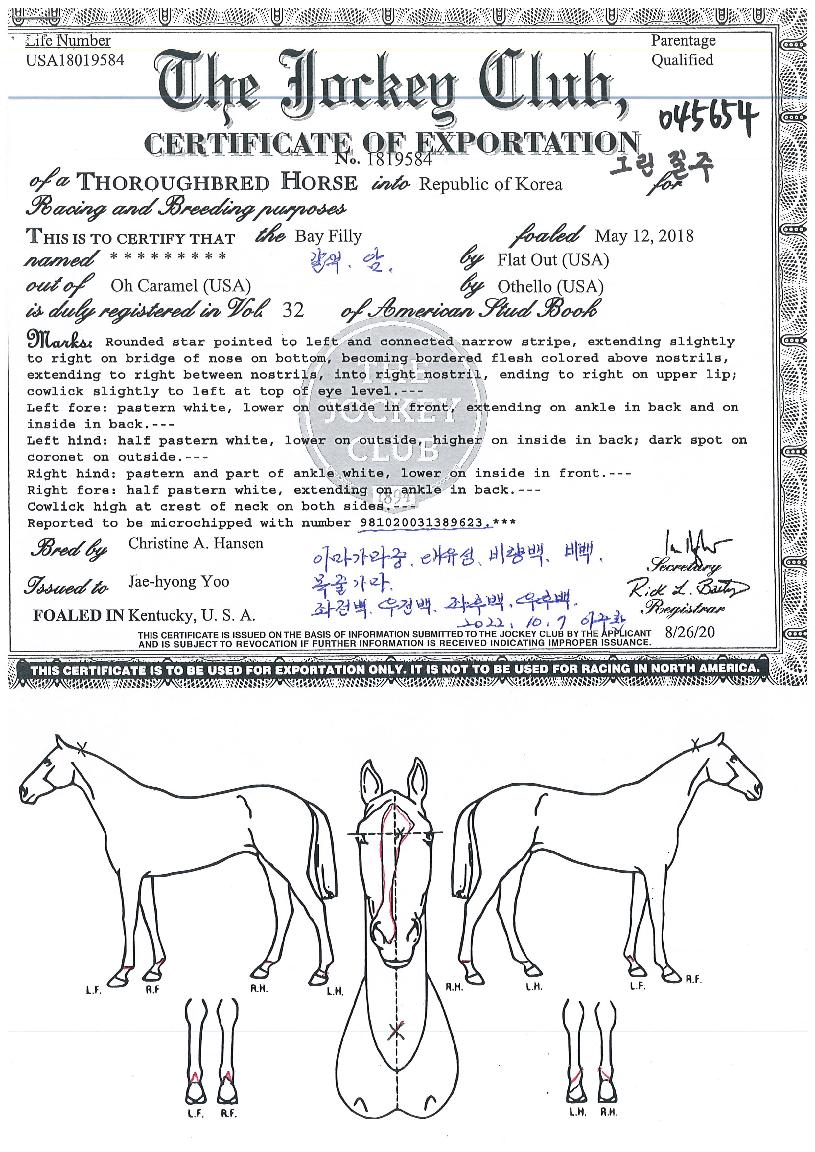 Life Number
USA18019584
Parentage
Qualified
The Jockey Club,
045654
CERTIFICATE OF EXPORTATION
No. 1819584
그린 질주
of a THOROUGHBRED HORSE into Republic of Korea for
Racing and Breeding purposes
THIS IS TO CERTIFY THAT the Bay Filly foaled May 12, 2018
named * * * * * * * * * 갈색. 암. by Flat Out (USA)
out of Oh Caramel (USA) by Othello (USA)
is duly registered in Vol. 32 of American Stud Book
Marks: Rounded star pointed to left and connected narrow stripe, extending slightly
to right on bridge of nose on bottom, becoming bordered flesh colored above nostrils,
extending to right between nostrils, into right nostril, ending to right on upper lip;
cowlick slightly to left at top of eye level.---
Left fore: pastern white, lower on outside in front, extending on ankle in back and on
inside in back.---
Left hind: half pastern white, lower on outside, higher on inside in back; dark spot on
coronet on outside.---
Right hind: pastern and part of ankle white, lower on inside in front.---
Right fore: half pastern white, extending on ankle in back.---
Cowlick high at crest of neck on both sides.---
Reported to be microchipped with number 981020031389623.***
THE
JOCKEY
CLUB
1894
Bred by Christine A. Hansen
Issued to Jae-hyong Yoo
FOALED IN Kentucky, U. S. A.
이마가마중. 대유성. 비량백. 비백.
목골가마.
좌전백. 우전백. 좌후백. 우후백.
2022. 10. 7
Secretary
Registrar
THIS CERTIFICATE IS ISSUED ON THE BASIS OF INFORMATION SUBMITTED TO THE JOCKEY CLUB BY THE APPLICANT
AND IS SUBJECT TO REVOCATION IF FURTHER INFORMATION IS RECEIVED INDICATING IMPROPER ISSUANCE.
8/26/20
THIS CERTIFICATE IS TO BE USED FOR EXPORTATION ONLY. IT IS NOT TO BE USED FOR RACING IN NORTH AMERICA.
L.F. R.F R.H. L.H. R.H. L.H. L.F. R.F.
L.F. R.F. L.H. R.H.